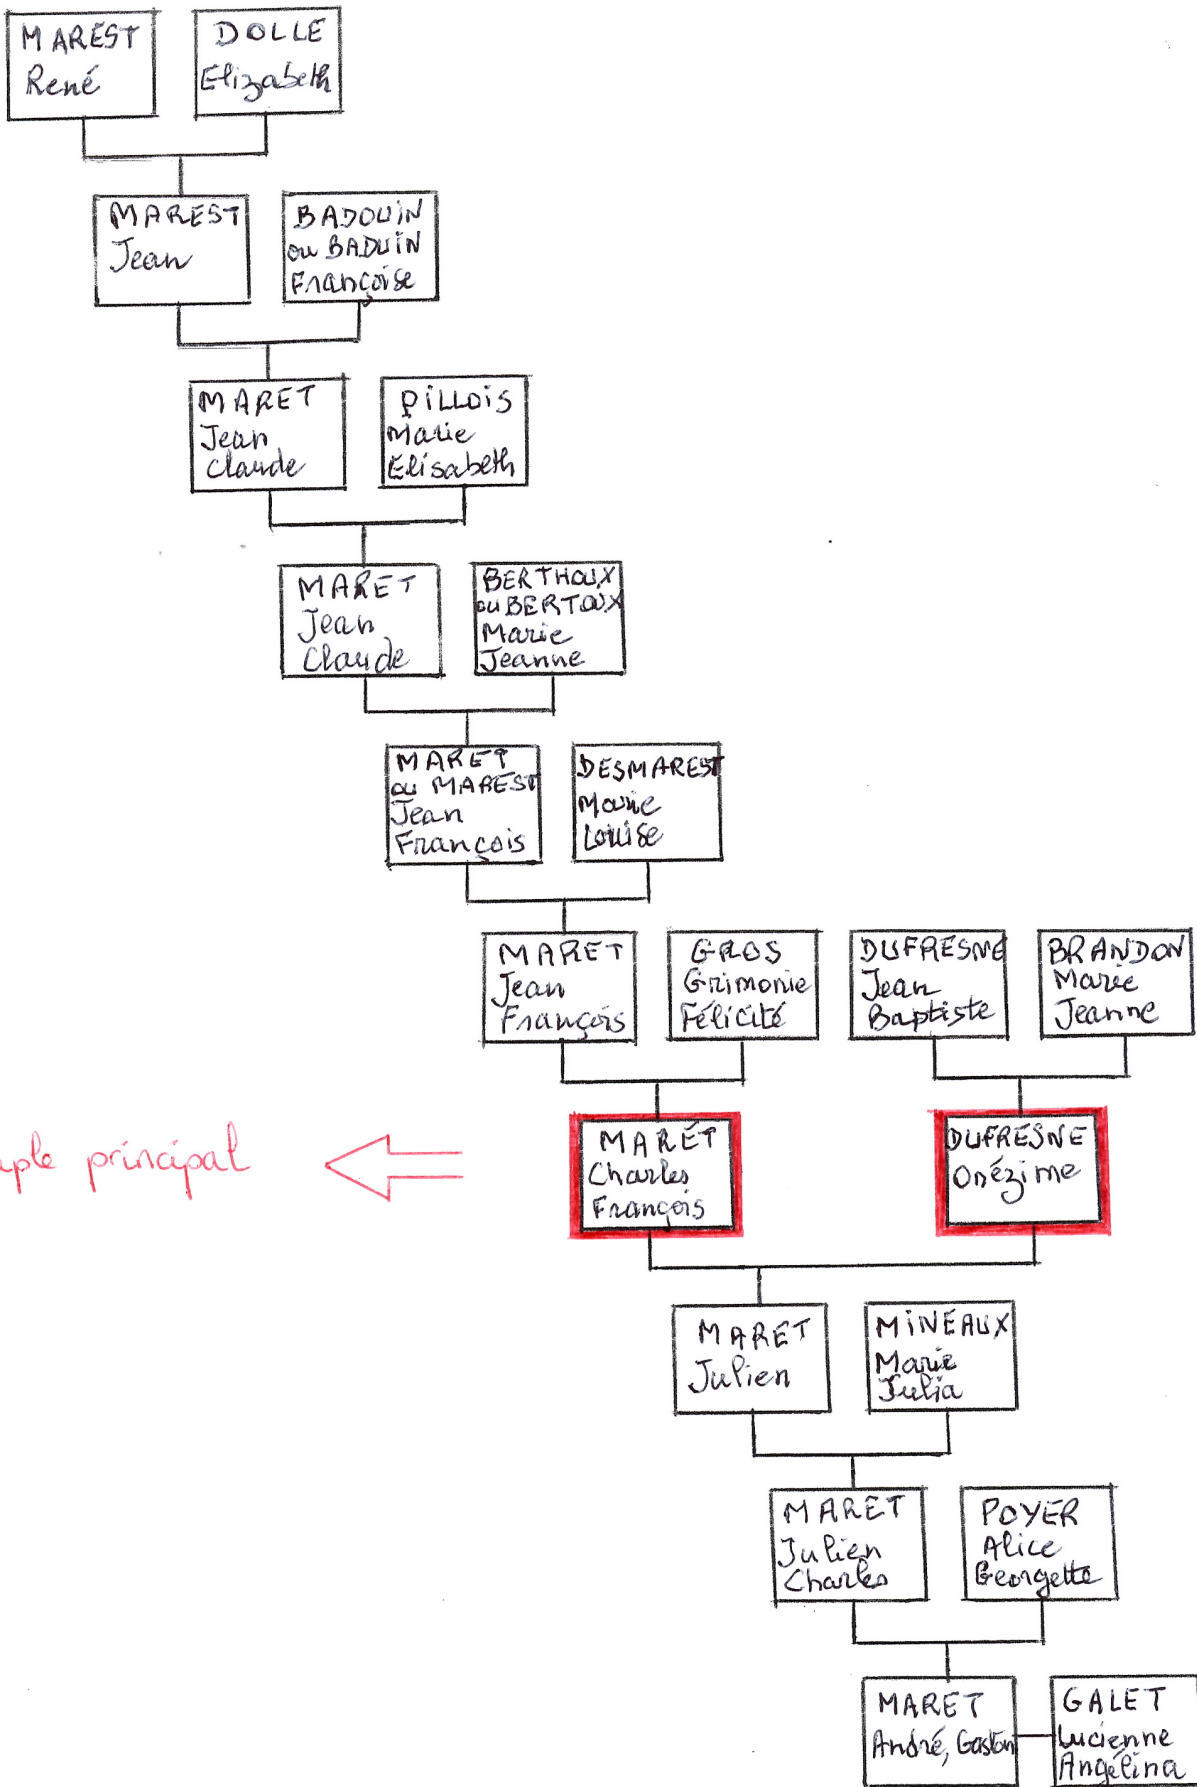 MAREST
René
DOLLE
Elizabeth
MAREST
Jean
BADOUIN
ou BADUIN
Françoise
MARET
Jean
Claude
PILLOIS
Marie
Elisabeth
MARET
Jean
Claude
BERTHOUX
ou BERTOUX
Marie
Jeanne
MARET
ou MAREST
Jean
François
DESMAREST
Marie
Louise
MARET
Jean
François
GROS
Grimonie
Félicité
DUFRESNE
Jean
Baptiste
BRANDON
Marie
Jeanne
principal
MARET
Charles
François
DUFRESNE
Onézime
MARET
Julien
MINEAUX
Marie
Julia
MARET
Julien
Charles
POYER
Alice
Georgette
MARET
André, Gaston
GALET
Lucienne
Angélina